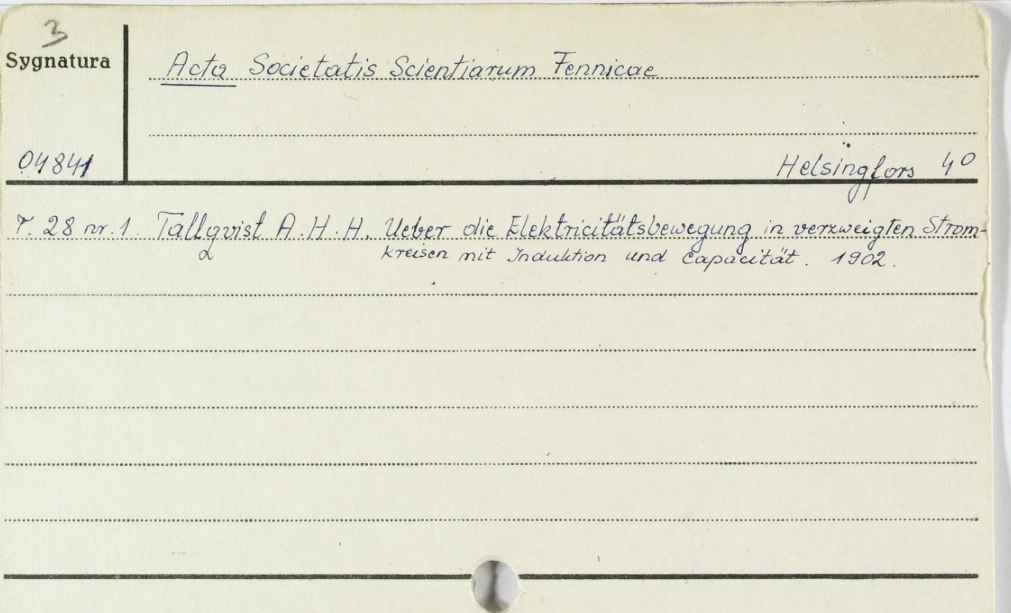 3
Sygnatura
Acta Societatis Scientiarum Fennicae
04841
Helsingfors 4º
T. 28 nr. 1. Tallqvist A. H. H. Ueber die Elektricitätsbewegung in verzweigten Strom-
kreisen mit Induktion und Capacität. 1902.